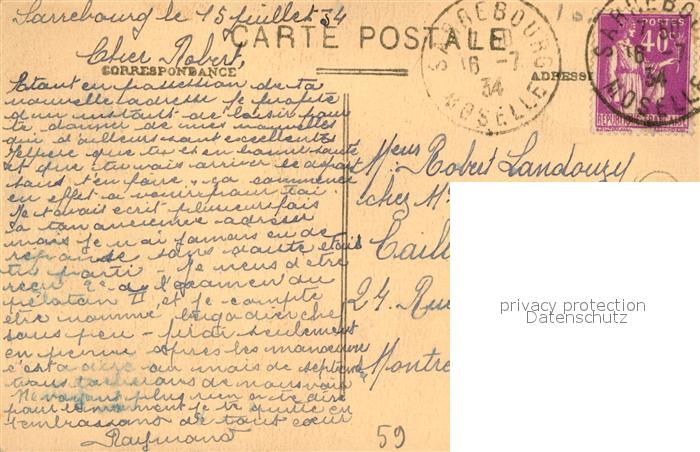 Sarrebourg le 15 juillet 34
CARTE POSTALE
Cher Robert,
CORRESPONDANCE
ADRESSE
Etant en possession de ta
nouvelle adresse je profite
d'un instant de loisir pour
te donner de mes nouvelles
qui d'ailleurs sont excellentes
J'espère que tu es en bonne santé
et que tu vois arriver le départ
sans t'en faire, ça commence
en effet a venir pour toi
Je t'avais écrit plusieurs fois
a ton ancienne adresse
mais je n'ai jamais eu de
réponse sans doute étais
tu parti - Je viens d'être
reçu 2e de l'examen du
peloton II, et je compte
être nommé brigadier che
sous peu - peut seulement
en permi après les manoeuvres
c'est a dire au mois de septembre
nous tacherons de nous voir
Ne voyant plus rien a te dire
pour le moment je te quitte en
t'embrassant de tout coeur
Raymond
Mr Robert Landouzy
chez Mr
Caill
24 Rue
Montre
59
SARREBOURG
16 -7
34
MOSELLE
SARREBOURG
16 -7
34
MOSELLE
POSTES
40c
REPUBLIQUE FRANÇAISE
privacy protection
Datenschutz